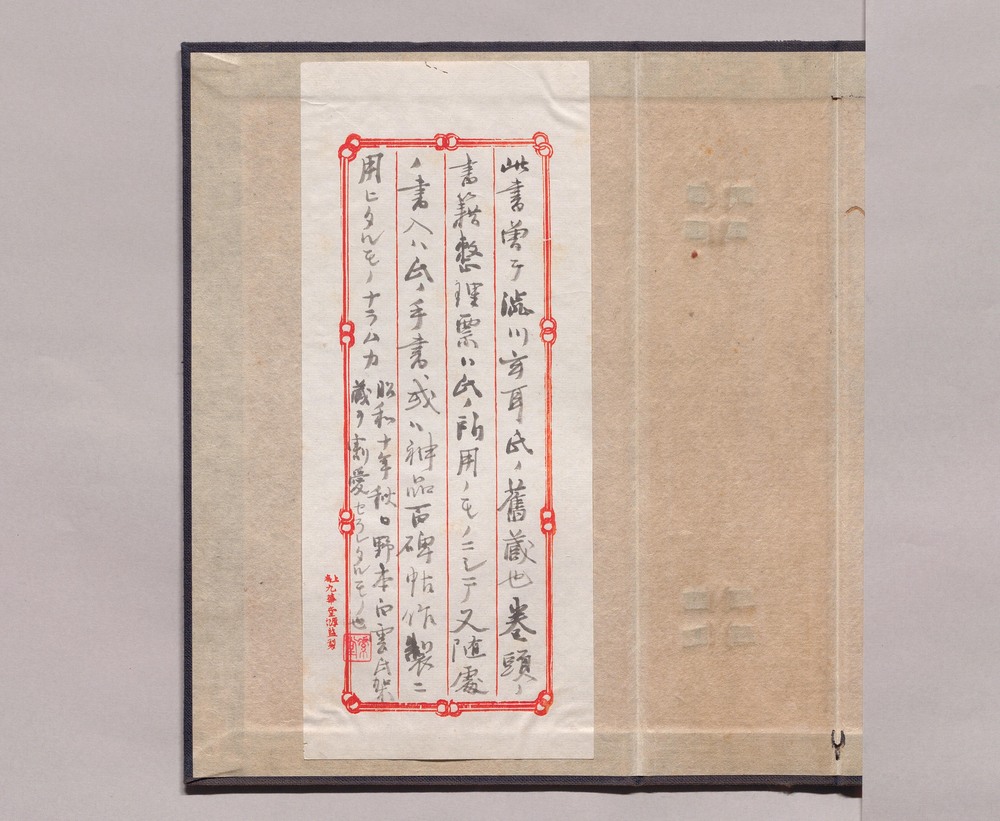 此書曽テ澁川玄耳氏ノ舊蔵也巻頭ノ
書籍整理票ハ氏ノ所用ノモノニシテ又随處
ノ書入ハ氏ノ手書、或ハ神品百碑帖作製ニ
用ヒタルモノナラムカ
昭和十年秋日野本白雲氏架
蔵ヲ割愛セラレタルモノ也
上海九華堂源益製